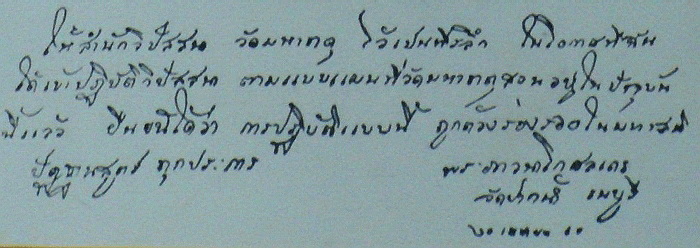 ให้สำนักวิปัสสนา วัดมหาธาตุ ไว้เป็นที่รฦก ในโอกาสที่ฉัน
ได้เข้าปฏิบัติวิปัสสนา ตามแบบแผนที่วัดมหาธาตุสอนอยู่ในปัจจุบัน
นี้แล้ว ยืนยันได้ว่า การปฏิบัติแบบนี้ ถูกต้องร่องรอยในมหาสติ
ปัฏฐานสูตร ทุกประการ
พระภาวนาโกศลเถร
วัดปากน้ำ ธนบุรี